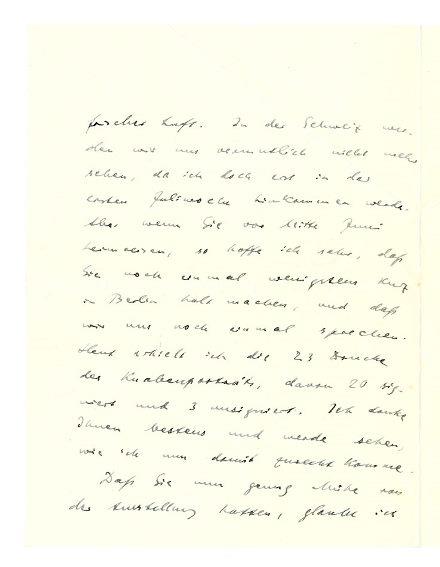 frischer Luft. In der Schweiz wer-
den wir uns vermutlich nicht mehr
sehen, da ich doch erst in der
ersten Juliwoche hinkommen werde.
Aber wenn Sie vor Mitte Juni
heimreisen, so hoffe ich sehr, daß
Sie noch einmal wenigstens kurz
in Berlin halt machen, und daß
wir uns noch einmal sprechen.
Heut erhielt ich die 23 Drucke
des Knabenportraits, davon 20 sig-
niert und 3 unsigniert. Ich danke
Ihnen bestens und werde sehen,
wie ich nun damit zurecht komme.
Daß Sie nun genug Mühe von
der Ausstellung hatten, glaube ich